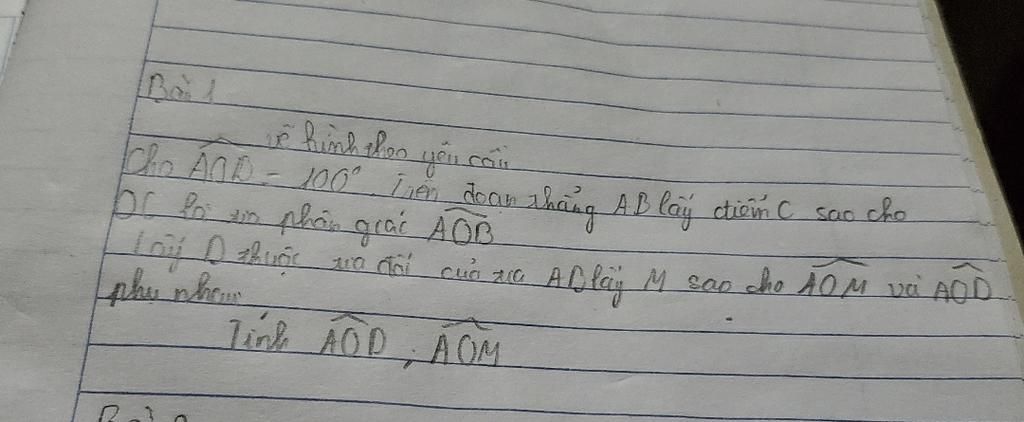 Bài 1
vẽ hình theo yêu cầu
Cho AOB = 100° Trên đoạn thẳng AB lấy điểm C sao cho
OC là tia phân giác AOB
Lấy D thuộc tia đối của tia AB lấy M sao cho AOM và AOD
phụ nhau
Tính AOD, AOM